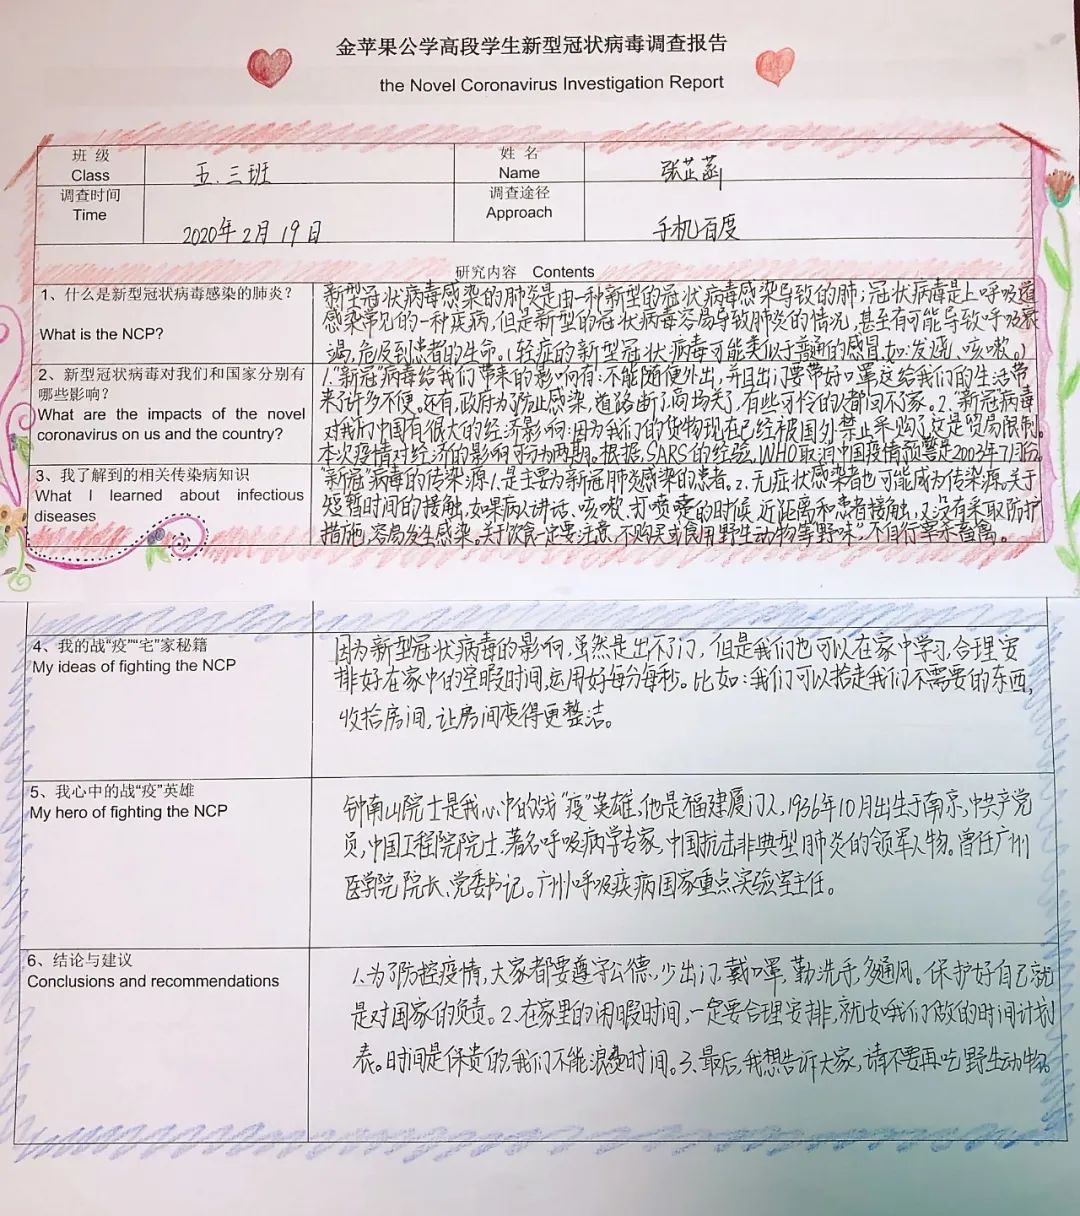 金苹果公学高段学生新型冠状病毒调查报告
the Novel Coronavirus Investigation Report
班 级
Class
五.三班
姓 名
Name
张芷菡
调查时间
Time
2020年2月19日
调查途径
Approach
手机百度
研究内容 Contents
1、什么是新型冠状病毒感染的肺炎?
What is the NCP?
新型冠状病毒感染的肺炎是由一种新型的冠状病毒感染导致的肺;冠状病毒是上呼吸道
感染常见的一种疾病,但是新型的冠状病毒容易导致肺炎的情况,甚至有可能导致呼吸衰
竭,危及到患者的生命。(轻症的新型冠状病毒可能类似于普通的感冒,如:发烧、咳嗽。)
2、新型冠状病毒对我们和国家分别有
哪些影响?
What are the impacts of the novel
coronavirus on us and the country?
1."新冠"病毒给我们带来的影响有:不能随便外出,并且出门要带好口罩这给我们的生活带
来了许多不便。还有,政府为了防止感染,道路断了,商场关了,有些可怜的人都回不了家。2."新冠"病毒
对我们中国有很大的经济影响:因为我们的货物现在已经被国外禁止采购了这是贸易限制。
本次疫情对经济的影响可分为两期。根据SARS的经验,WHO取消中国疫情预警是2003年7月份。
3、我了解到的相关传染病知识
What I learned about infectious
diseases
"新冠"病毒的传染源1.是主要为新冠肺炎感染的患者。2.无症状感染者也可能成为传染源。关于
短暂时间的接触,如果病人讲话、咳嗽、打喷嚏的时候,近距离和患者接触,又没有采取防护
措施,容易发生感染。关于饮食一定要注意,不购买或食用野生动物等野味",不自行宰杀畜禽。
4、我的战"疫""宅"家秘籍
My ideas of fighting the NCP
因为新型冠状病毒的影响,虽然是出不了门,但是我们也可以在家中学习,合理安
排好在家中的空暇时间,运用好每分每秒。比如:我们可以拾走我们不需要的东西,
收拾房间,让房间变得更整洁。
5、我心中的战"疫"英雄
My hero of fighting the NCP
钟南山院士是我心中的战"疫"英雄,他是福建厦门人,1936年10月出生于南京,中共产党
员,中国工程院院士,著名呼吸病学专家,中国抗击非典型肺炎的领军人物。曾任广州
医学院院长、党委书记。广州呼吸疾病国家重点实验室主任。
6、结论与建议
Conclusions and recommendations
1.为了防控疫情,大家都要遵守公德,少出门,戴口罩,勤洗手,多通风。保护好自己就
是对国家的负责。2.在家里的闲暇时间,一定要合理安排,就如我们做的时间计划
表。时间是保贵的,我们不能浪费时间。3.最后,我想告诉大家,请不要再吃野生动物。